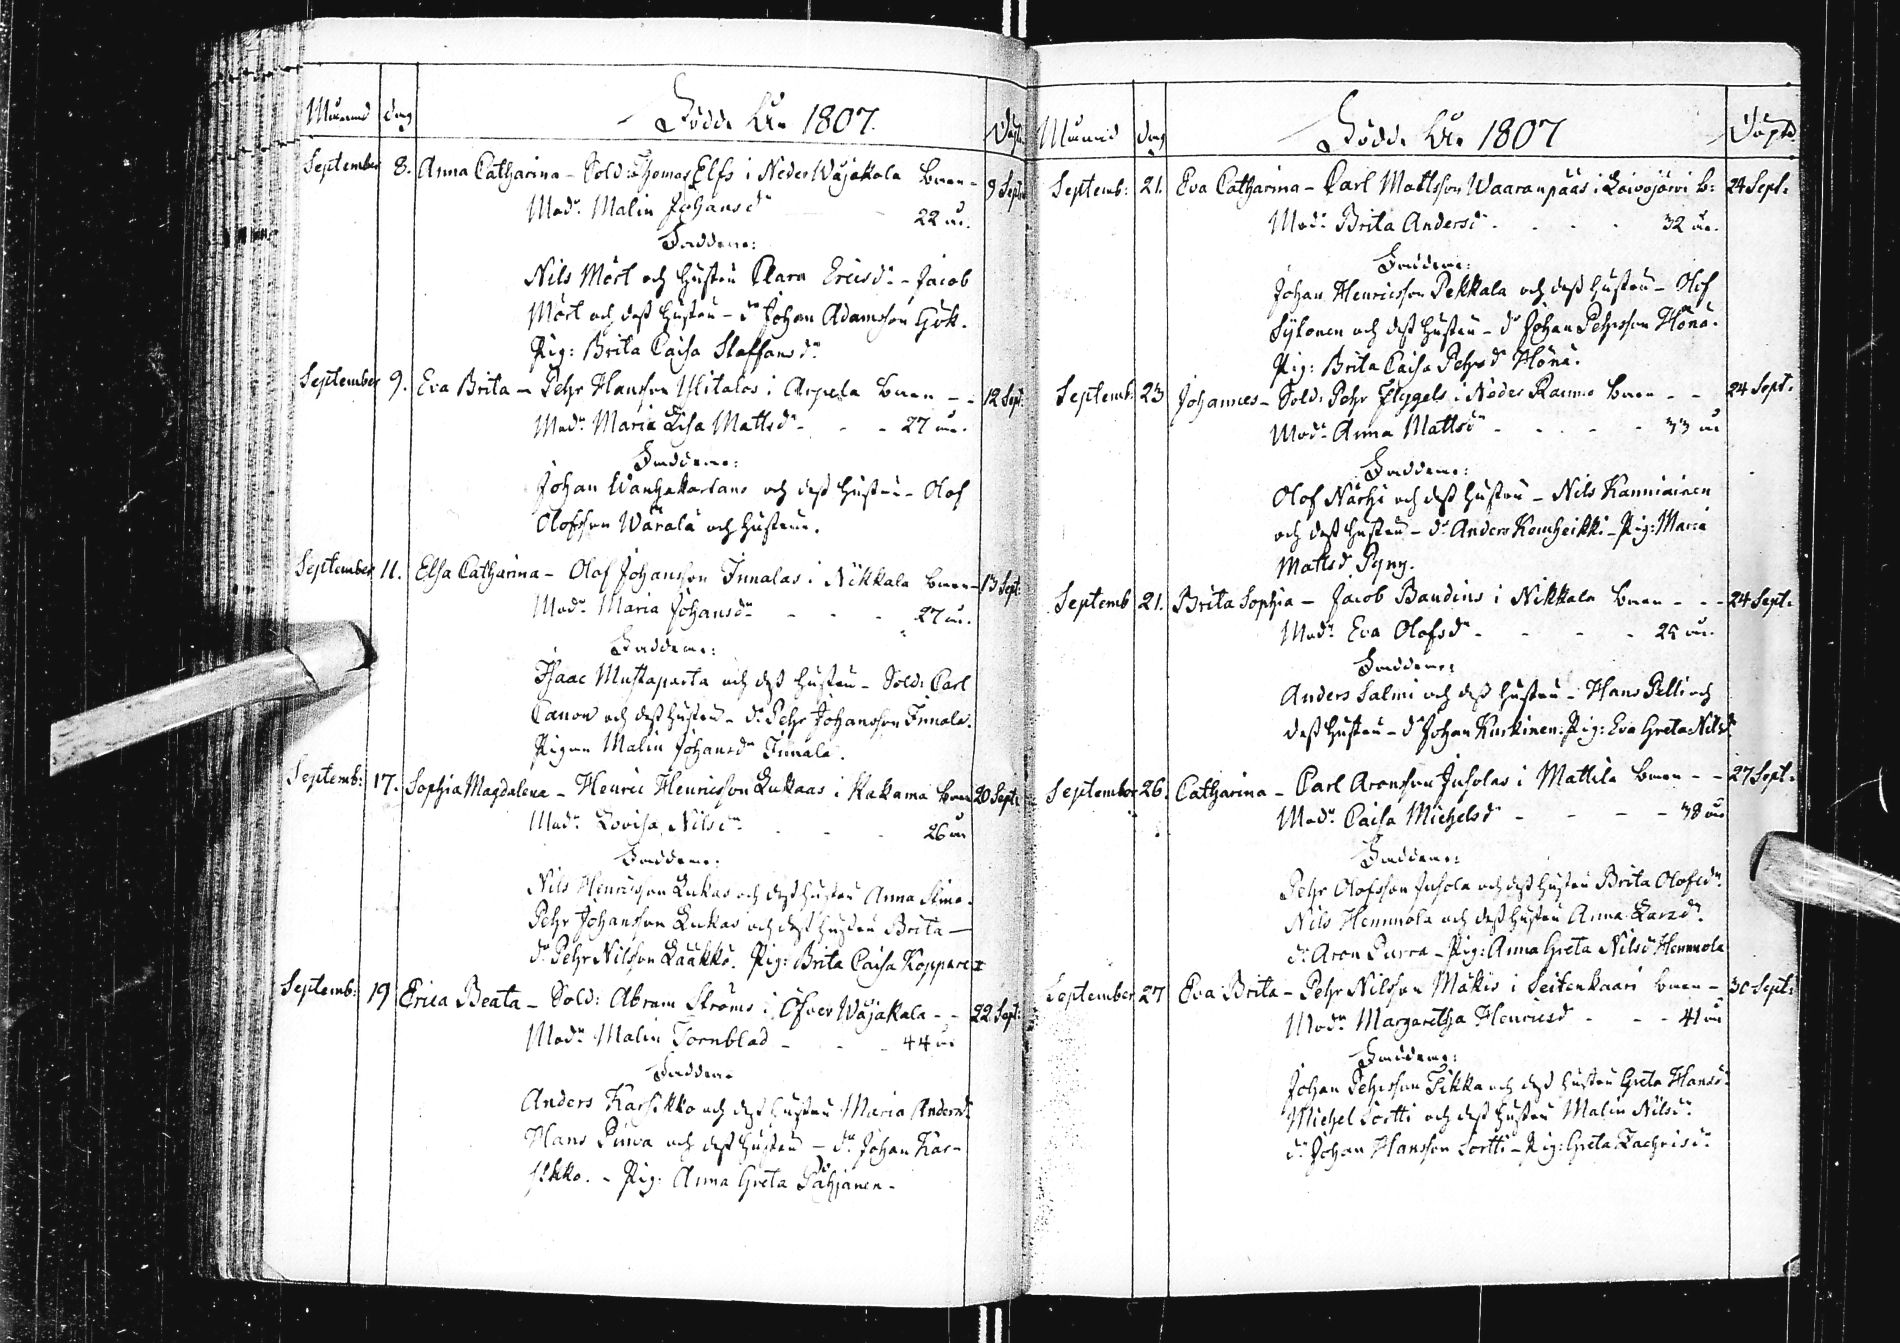 Månad dag Födde År 1807. Döpte
September 8. Anna Catharina - Sold: Thomas Elfs i Neder Wojakala barn - 9 Sept:
Modr Malin Johansdr 22 år.
Faddrar:
Nils Mört och hustru Clara Ericsdr - Jacob
Mört och dess hustru - dr Johan Adamsson Gök.
Pig: Brita Caisa Staffansdr
September 9. Eva Brita - Pehr Hansson Ylitalos i Arpela barn - - 12 Sept:
Modr Maria Lisa Mattsdr - - - 27 år.
Faddrar:
Johan Wanhakartano och dess hustru - Olof
Olofsson Wärälä och hustru.
September 11. Elsa Catharina - Olof Johansson Innalas i Nikkala barn - 13 Sept:
Modr Maria Johansdr - - - 27 år.
Faddrar:
Isaac Mustaparta och dess hustru - Sold: Carl
Canon och dess hustru - dr Pehr Johansson Innala.
Pigan Malin Johansdr Innala.
Septemb: 17. Sophia Magdalena - Henric Henricsson Lukkaas i Kakama barn 20 Sept:
Modr Lovisa Nilsdr - - - 26 år
Faddrar:
Nils Henricsson Lukas och dess hustru Anna Stina.
Pehr Johansson Lukkas och dess hustru Brita -
dr Pehr Nilsson Laakko. Pig: Brita Caisa
Septemb: 19 Erica Beata - Sold: Abram Ströms i Öfver Wojakala - - 22 Sept:
Modr Malin Törnblad - - - 44 år
Faddrar
Anders Karsikko och dess hustru Maria Andersdr
Hans och dess hustru - dr Johan Kar-
sikko. - Pig: Anna Greta
Månad dag Födde År 1807 Döpte
Septemb: 21. Eva Catharina - Carl Mattsson Waaranpääs i Laivajärvi b: 24 Sept:
Modr Brita Andersdr - - - 32 år.
Faddrar:
Johan Henricsson Pekkala och dess hustru - Olof
och dess hustru - dr Johan Pehrsson Höna.
Pig: Brita Caisa Pehrsdr Höna.
Septemb: 23 Johannes - Sold: Pehr Flygels i Neder Raumo barn - - 24 Sept:
Modr Anna Mattsdr - - - - 33 år
Faddrar:
Olof Närhi och dess hustru - Nils Kanniainen
och dess hustru - dr Anders Kemheikki - Pig: Maria
Mattsdr Pyny.
Septemb 21. Brita Sophia - Jacob Baudins i Nikkala barn - - - 24 Sept:
Modr Eva Olofsdr - - - - år.
Faddrar:
Anders Salmi och dess hustru - Hans Pelli och
dess hustru - dr Johan Kurkinen: Pig: Eva Greta Nilsdr
September 26. Catharina - Carl Aronsson Juholas i Mattila barn - - 27 Sept:
Modr Caisa Michelsdr - - - - 38 år
Faddrar:
Pehr Olofsson Juhola och dess hustru Brita Olofsdr.
Nils Hemmola och dess hustru Anna Larsdr.
dr Aron Purra - Pig: Anna Greta Nilsdr Hemmola
September 27 Eva Brita - Pehr Nilsson Mäkis i Seitenkaari barn - 30 Sept:
Modr Margaretha Henricsdr - - - 41 år
Faddrar:
Johan Pehrsson Tikka och dess hustru Greta Hansdr.
Michel Lortti och dess hustru Malin Nilsdr.
dr Johan Hansson Lortti - Pig: Greta Zachrisdr.